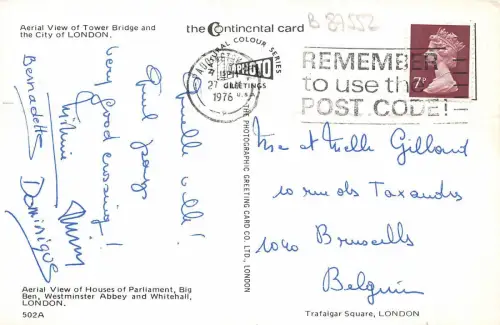 Aerial View of Tower Bridge and
the City of LONDON.
the Continental card
B 87552
NATURAL COLOUR SERIES
GREETINGS
1976
REMEMBER
to use the
POST CODE!
7P
Quelle ville!
Quel pays
Very good crossing!
Bernadette
Dominique
THE PHOTOGRAPHIC GREETING CARD CO. LTD., LONDON
Me et Melle Gilland
10 rue des Taxandres
1040 Bruxelles
Belgium
Aerial View of Houses of Parliament, Big
Ben, Westminster Abbey and Whitehall,
LONDON.
502A
Trafalgar Square, LONDON